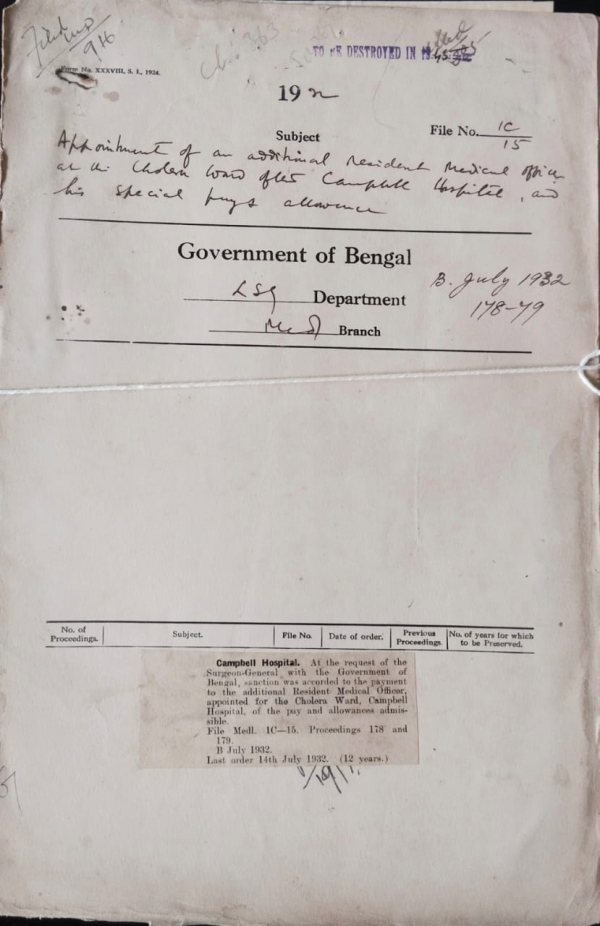 9/6
Form No. XXXVIII, S. I., 1924.
TO BE DESTROYED IN
1932
Subject
File No. 1C/15
Appointment of an additional resident medical officer
at the Cholera Ward of the Campbell Hospital, and
his special pays allowance
Government of Bengal
LSG Department
Medl Branch
B. July 1932
178-79
No. of Proceedings. Subject. File No. Date of order. Previous Proceedings. No. of years for which to be Preserved.
Campbell Hospital. At the request of the
Surgeon-General with the Government of
Bengal, sanction was accorded to the payment
to the additional Resident Medical Officer,
appointed for the Cholera Ward, Campbell
Hospital, of the pay and allowances admis-
sible.
File Medl. 1C—15. Proceedings 178 and
179.
B July 1932.
Last order 14th July 1932. (12 years.)